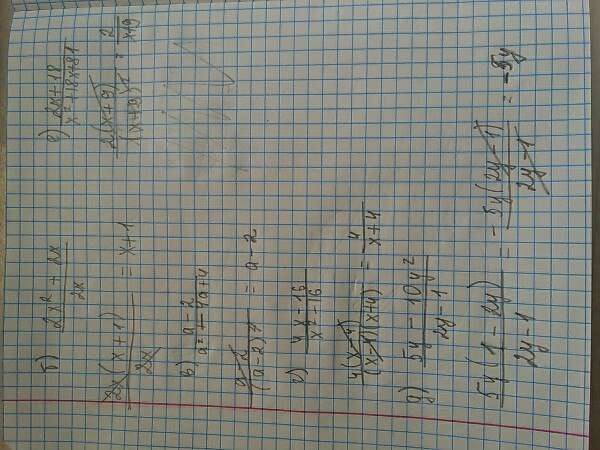 б) (2x² + 2x)/(2x)
(2x(x+1))/(2x) = x+1
в) (a-2)/(a²-4a+4)
(a-2)/((a-2)²) = a-2
г) (4x-16)/(x²-16)
(4(x-4))/((x-4)(x+4)) = 4/(x+4)
д) (5y - 10y²)/(2y-1)
(5y(1-2y))/(2y-1) = -(5y(2y-1))/(2y-1) = -5y
е) (2x+18)/(x²+18x+81)
(2(x+9))/((x+9)²) = 2/(x+9)